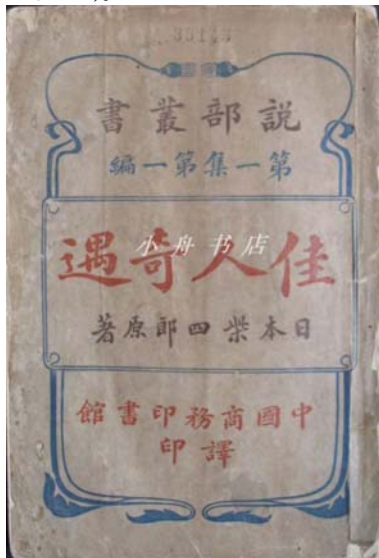 說部叢書
第一集第一編
佳人奇遇
小舟书店
日本柴四郎原著
中國商務印書館
譯印